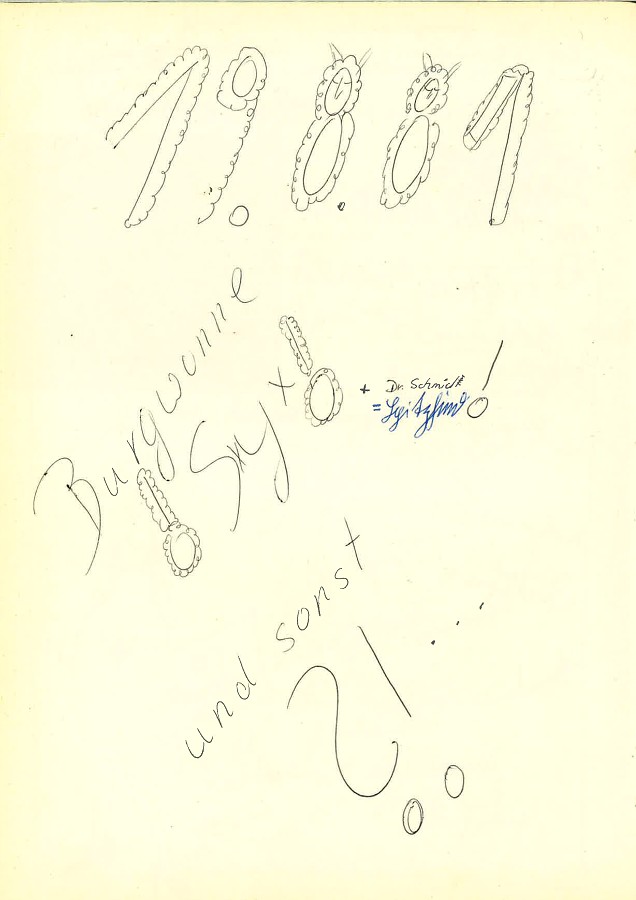 19.8.81
Burgwonne
Syx!
+ Dr. Schmidt
= Spitzfind!
und sonst
?! ...